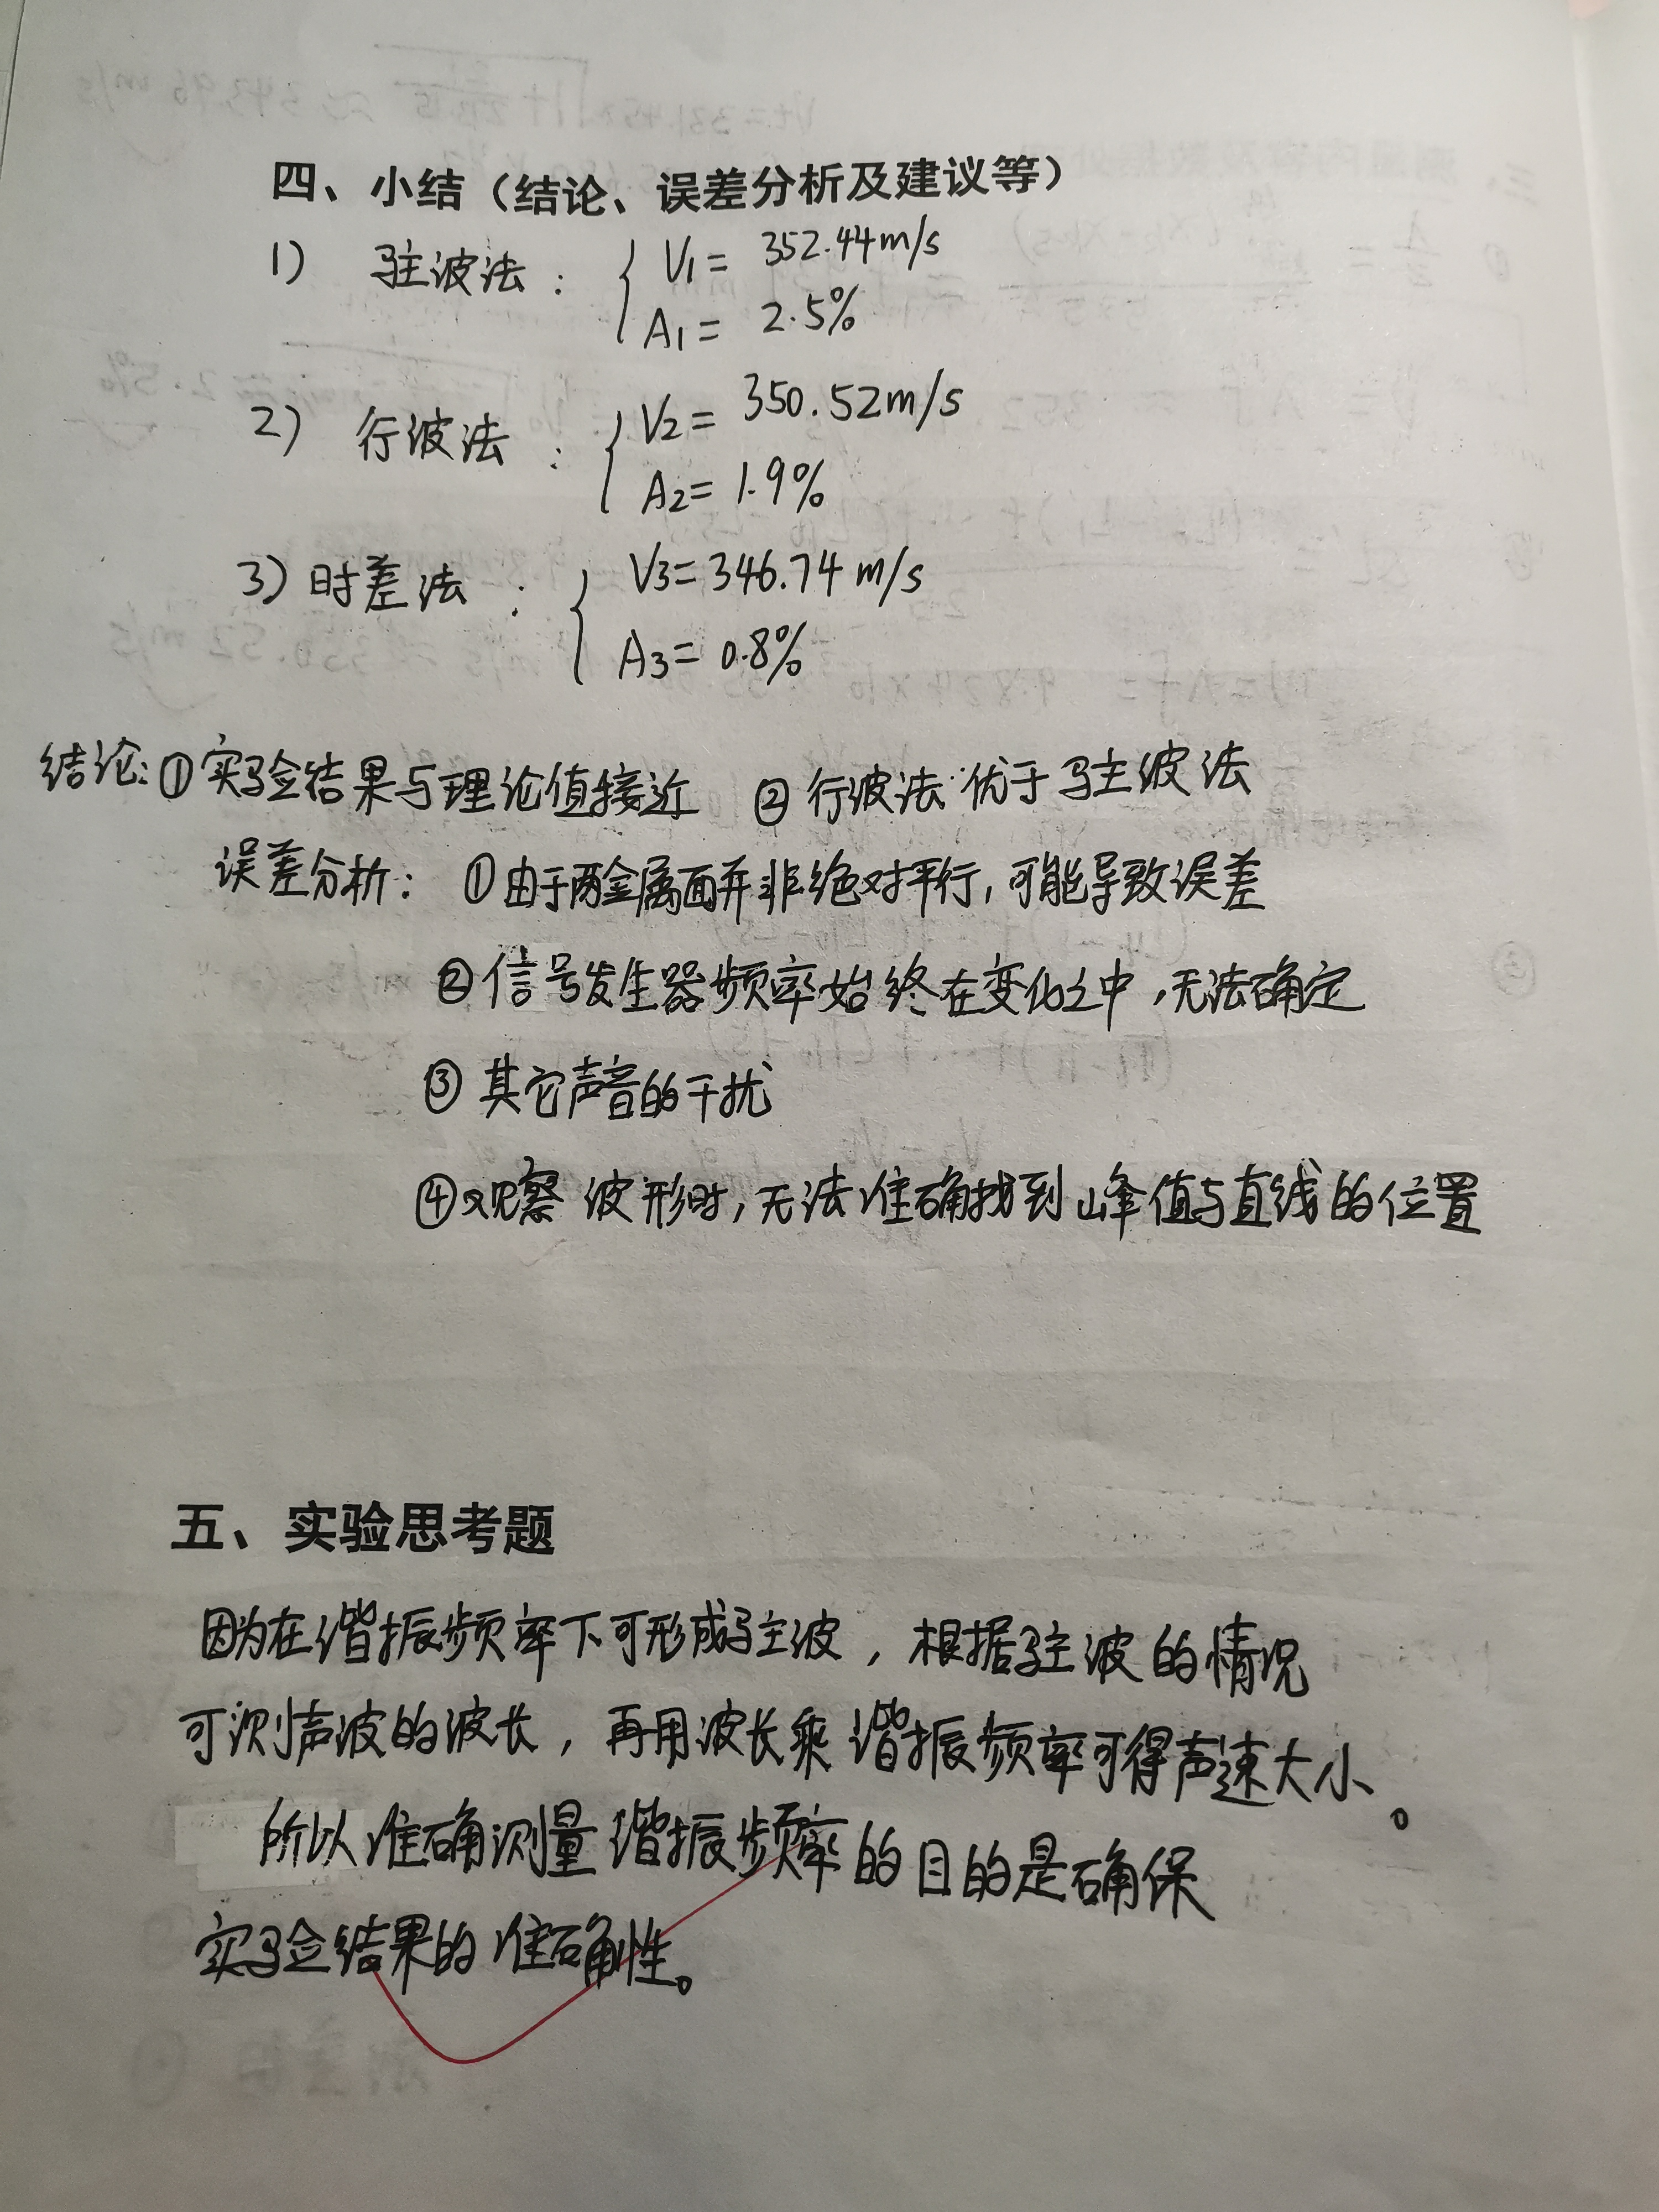 四、小结（结论、误差分析及建议等）
1) 驻波法: { V1= 352.44m/s
A1= 2.5%
2) 行波法: { V2= 350.52m/s
A2= 1.9%
3) 时差法: { V3=346.74 m/s
A3= 0.8%
结论:①实验结果与理论值接近 ②行波法优于驻波法
误差分析: ①由于两金属面并非绝对平行,可能导致误差
②信号发生器频率始终在变化之中,无法确定
③其它声音的干扰
④观察波形时,无法准确找到峰值与直线的位置
五、实验思考题
因为在谐振频率下可形成驻波,根据驻波的情况
可测声波的波长,再用波长乘谐振频率可得声速大小。
所以准确测量谐振频率的目的是确保
实验结果的准确性。